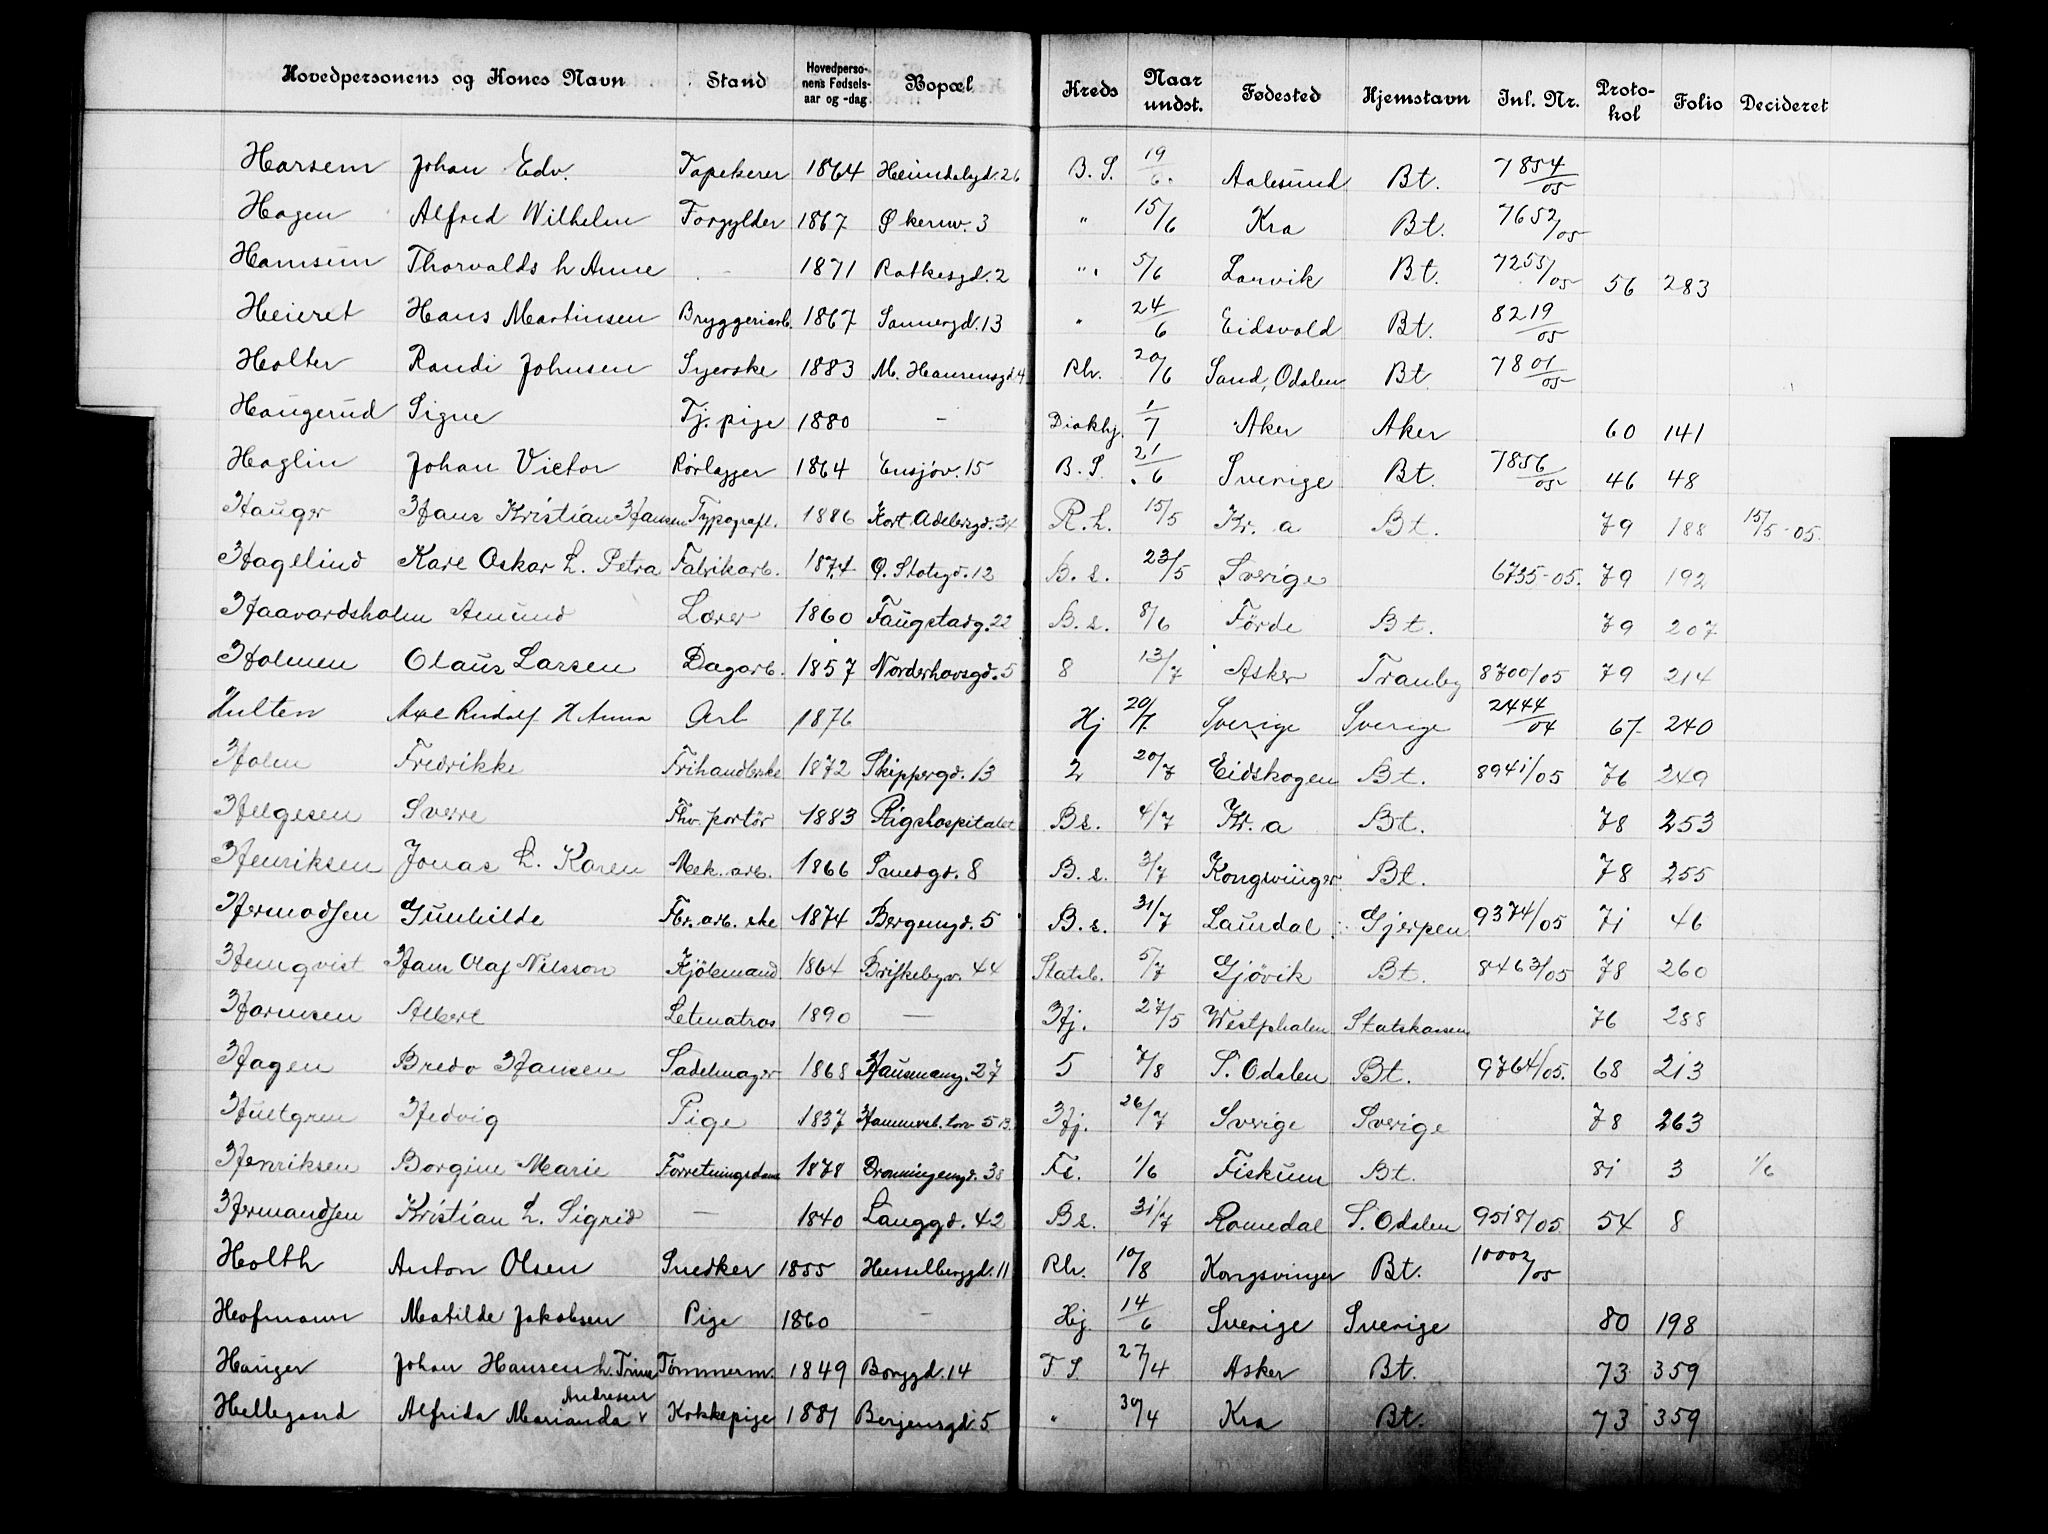 Hovedpersonens og Kones Navn Stand Hovedpersonens Fødselsaar og -dag Bopæl Kreds Naar undst. Fødested Hjemstavn Inl. Nr. Protokol Folio Decideret
Harsem Johan Edv. Tapetserer 1864 Heimdalsgd. 26 B. S. 19/6. Aalesund Bt. 7854/05
Hagen Alfred Wilhelm Forgylder 1867 Økernv. 3 " 15/6 Kra Bt. 7652/05
Hamsun Thorvalds h Anne - 1871 Ratkesgd. 2 " 5/6 Larvik Bt. 7255/05 56 283
Heieret Hans Martinsen Bryggeriarb. 1867 Sannergd. 13 " 24/6 Eidsvold Bt. 8219/05
Holter Randi Johnsen Syerske 1883 M. Haurensgd. 4 Rh. 20/6 Sand, Odalen Bt. 7801/05
Haugerud Signe Tj. pige 1880 - Diakhj. 1/7 Aker Aker 60 141
Haglin Johan Victor Rørlægger 1864 Ensjøv. 15 B. S. 21/6 Sverige Bt. 7856/05 46 48
Hauger Hans Kristian Hansen Typograf. 1886 Kort Adelersgd. 34 R. h. 15/5 Kr. a Bt. 79 188 15/5-05.
Hagelind Karl Oskar h. Petra Fabrikarb. 1874 Ø. Slotsgd. 12 B. s. 23/5 Sverige 6735-05. 79 192
Haavardsholm Amund Lærer 1860 Faugstadg. 22 B. s. 8/6 Förde Bt. 79 207
Holmen Olaus Larsen Dagarb. 1857 Norderhovsgd. 5 8 13/7 Asker Tranby 8700/05 79 214
Hulten Axel Rudolf H Anna Arb 1876 Hj 20/7. Sverige Sverige 2444/04 67 240
Holen Fredrikke Frihandlerske 1872 Skippergd. 13 2 20/7 Eidskogen Bt. 8941/05 76 249
Helgesen Sverre Fhv. portör 1883 Rigshospitalet Bs. 4/7 Kr. a Bt. 78 253
Henriksen Jonas h. Karen Mek. arb. 1866 Smedgd. 8 B. s. 3/7 Kongsvinger Bt. 78 255
Hermodsen Gunhilde Fbr. arb. ske 1874 Bergensgd. 5 B. s. 31/7 Laurdal Gjerpen 9374/05 71 46
Hemqvist Hans Olaf Nilsson Kjölemand 1864 Briskebyv. 44 Statsb. 5/7 Gjövik Bt. 8463/05 78 260
Harmsen Albert Letmatros 1890 — Hj. 27/5 Westphalen Statskassen 76 288
Hagen Bredo Hansen Sadelmager 1868 Hausmansg. 27 5 7/8 S. Odalen Bt. 9764/05. 68 213
Hultgren Hedvig Pige 1837 Hammersb. torv 5 B. Hj. 26/7 Sverige Sverige 78 263
Henriksen Borgine Marie Forretningsdame 1878 Dronningensgd. 38 Fs. 1/6 Fiskum Bt. 81 3 1/6
Hermandsen Kristian h. Sigrid — 1840 Langgd. 42 Bs. 31/7 Romedal S. Odalen 9518/05. 54 8
Holth Anton Olsen Snedker 1855 Hesselberggd. 11 Rh. 10/8 Kongsvinger Bt. 10002/05
Hofmann Matilde Jakobsen Pige 1860 - Hj. 14/6 Sverige Sverige 80 198
Hauger Johan Hansen h. Trine Tømmerm. 1849 Borggd. 14 F S. 27/4 Asker Bt. 73 359
Andresen
Hellegaard Alfrida Marianda v Kokkepige 1881 Berjensgd. 5 " 30/4 Kra Bt. 73 359